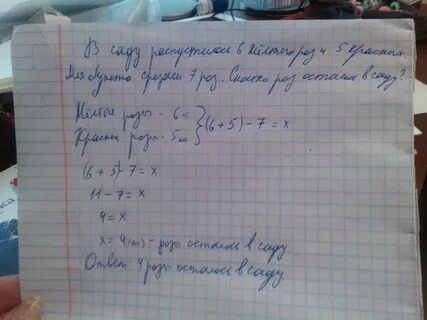 В саду распустилось 6 жёлтых роз и 5 красных.
Для букета срезали 7 роз. Сколько роз осталось в саду?
Жёлтые розы - 6 ш
Красные розы - 5 шт } (6+5)-7=x
(6+5)-7=x
11-7=x
4=x
x=4(шт)-розы осталось в саду
Ответ 4 розы осталось в саду